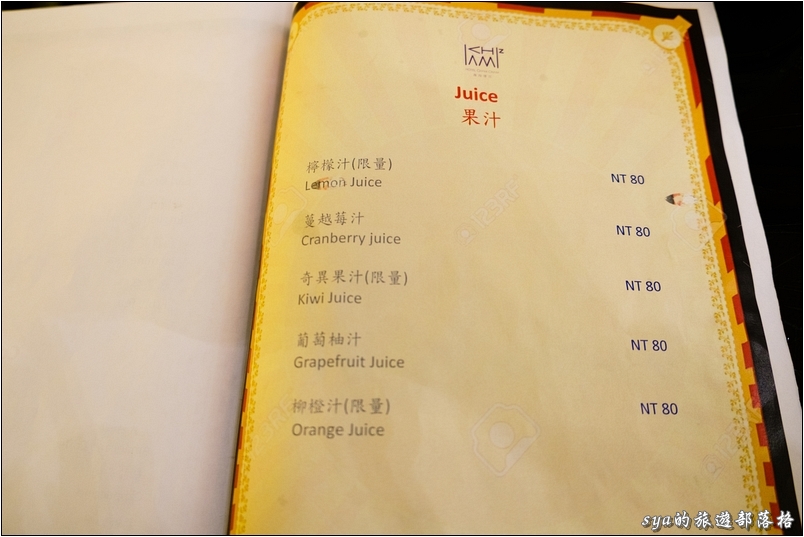 Juice
果汁
檸檬汁(限量)
Lemon Juice NT 80
蔓越莓汁
Cranberry juice NT 80
奇異果汁(限量)
Kiwi Juice NT 80
葡萄柚汁
Grapefruit Juice NT 80
柳橙汁(限量)
Orange Juice NT 80
sya的旅遊部落格